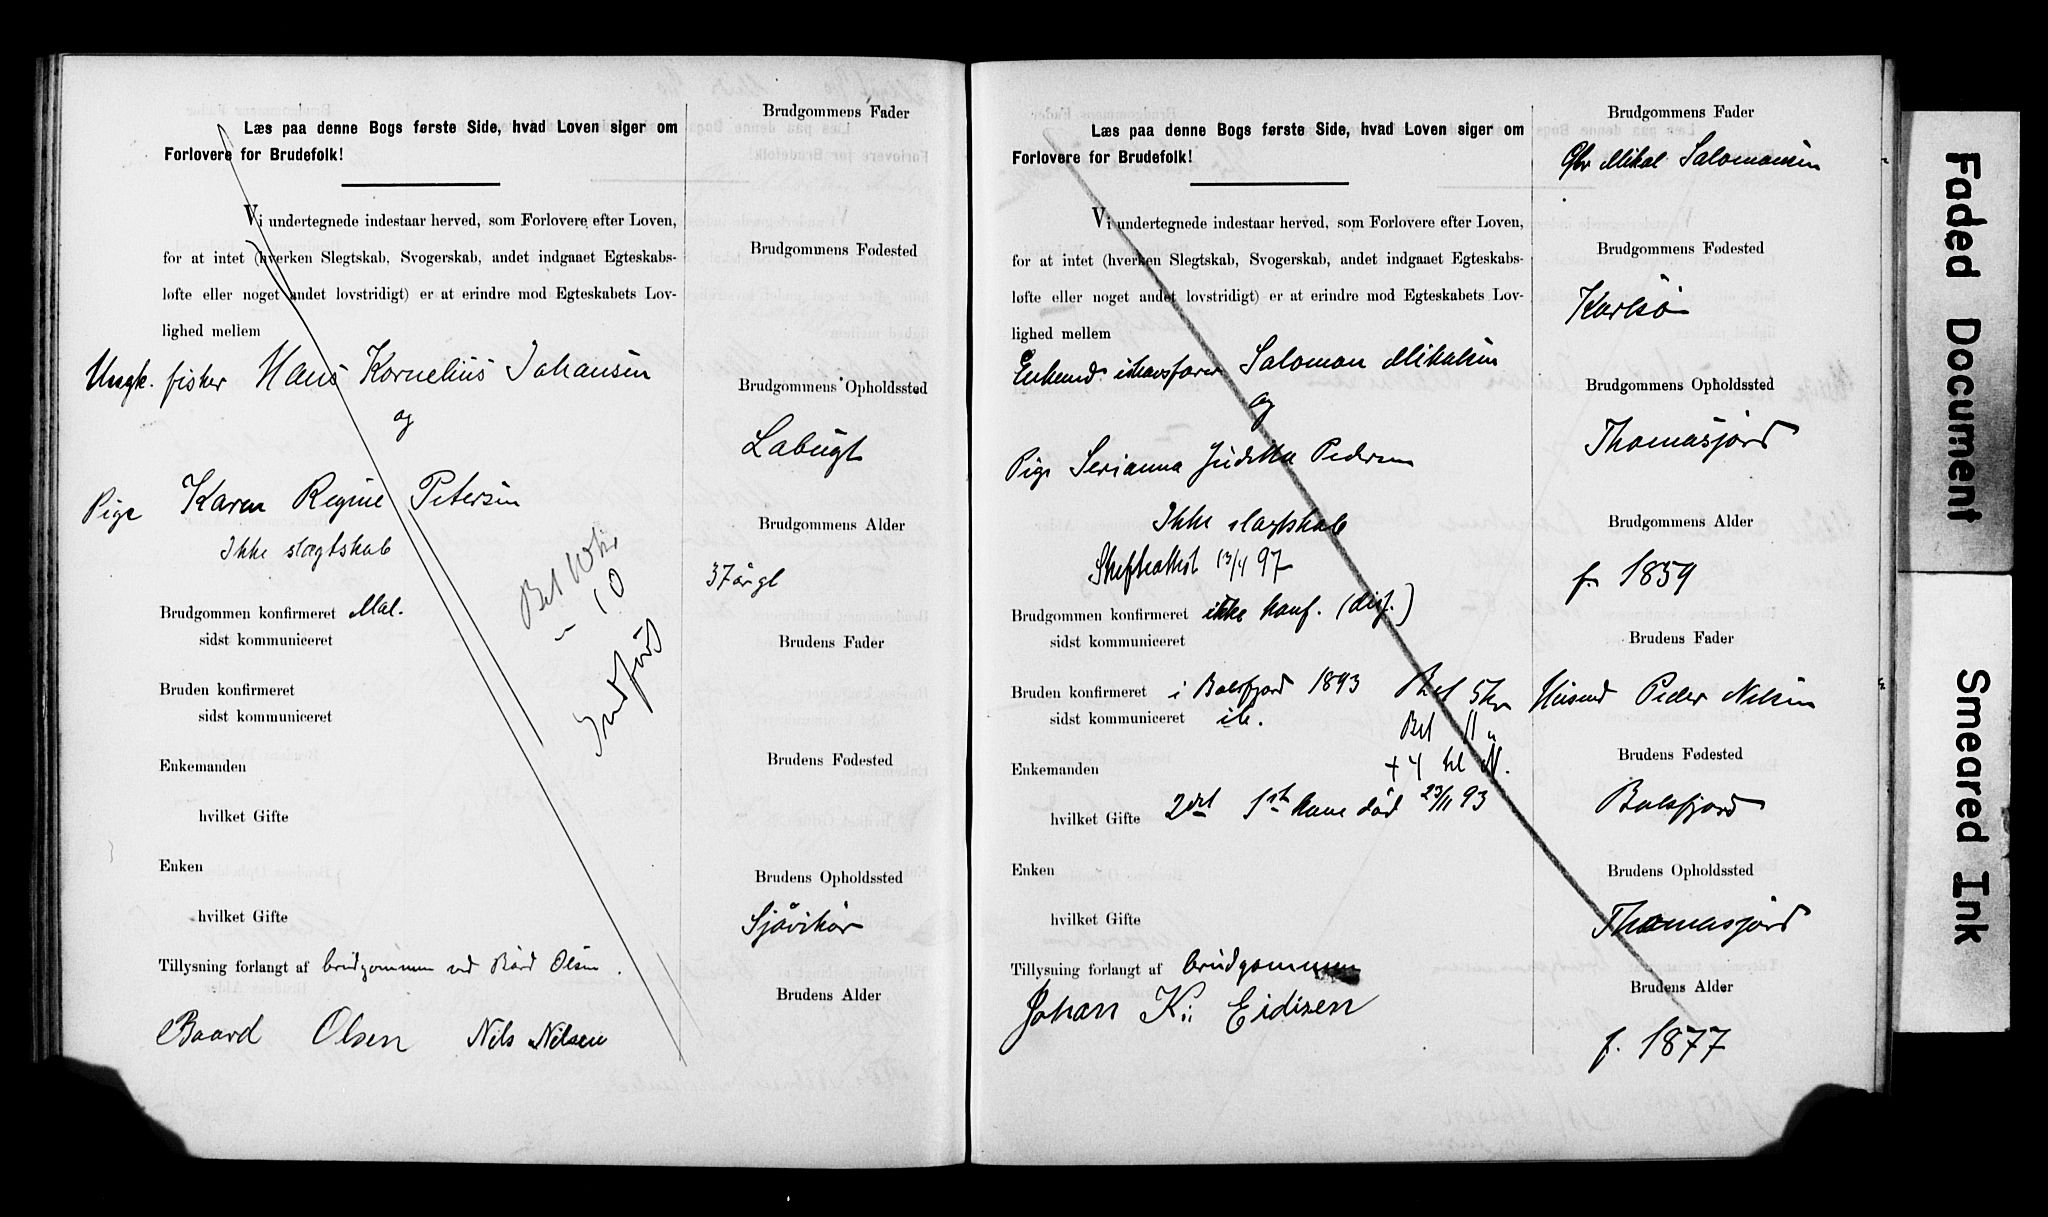 Læs paa denne Bogs første Side, hvad Loven siger om
Forlovere for Brudefolk!
Vi undertegnede indestaar herved, som Forlovere efter Loven,
for at intet (hverken Slegtskab, Svogerskab, andet indgaaet Egteskabs-
løfte eller noget andet lovstridigt) er at erindre mod Egteskabets Lov-
lighed mellem
Ungk. fisker Hans Kornelius Johansen
og
Pige Karen Regine Petersen
Ikke slægtskab
Bet 10 kr
" 10
Indført
Brudgommen konfirmeret Mal.
sidst kommuniceret
Bruden konfirmeret
sidst kommuniceret
Enkemanden
hvilket Gifte
Enken
hvilket Gifte
Tillysning forlangt af brudgommen ved Bård Olsen.
Baard Olsen Nils Nilsen
Brudgommens Fader
Brudgommens Fødested
Brudgommens Opholdssted
Labugt
Brudgommens Alder
37 årgl
Brudens Fader
Brudens Fødested
Brudens Opholdssted
Sjåvikør
Brudens Alder
Læs paa denne Bogs første Side, hvad Loven siger om
Forlovere for Brudefolk!
Vi undertegnede indestaar herved, som Forlovere efter Loven,
for at intet (hverken Slegtskab, Svogerskab, andet indgaaet Egteskabs-
løfte eller noget andet lovstridigt) er at erindre mod Egteskabets Lov-
lighed mellem
Enkemd ishavsfarer Salomon Mikalsen
og
Pige Serianna Juditta Pedersen
Ikke slagtskab
Skifteattest 13/4 97
Brudgommen konfirmeret ikke konf. (diss.)
sidst kommuniceret
Bruden konfirmeret i Balsfjord 1893 Bet 5 kr
sidst kommuniceret ib. Bet 11 "
+ 4 til N.
Enkemanden
hvilket Gifte 2det 1ste kone død 23/11 93
Enken
hvilket Gifte
Tillysning forlangt af brudgommen
Johan K: Eidisen
Brudgommens Fader
Gbr Mikal Salomonsen
Brudgommens Fødested
Karlsø
Brudgommens Opholdssted
Thomasjord
Brudgommens Alder
f. 1859
Brudens Fader
Husmd Peder Nilsen
Brudens Fødested
Balsfjord
Brudens Opholdssted
Thomasjord
Brudens Alder
f. 1877
Faded Document
Smeared Ink